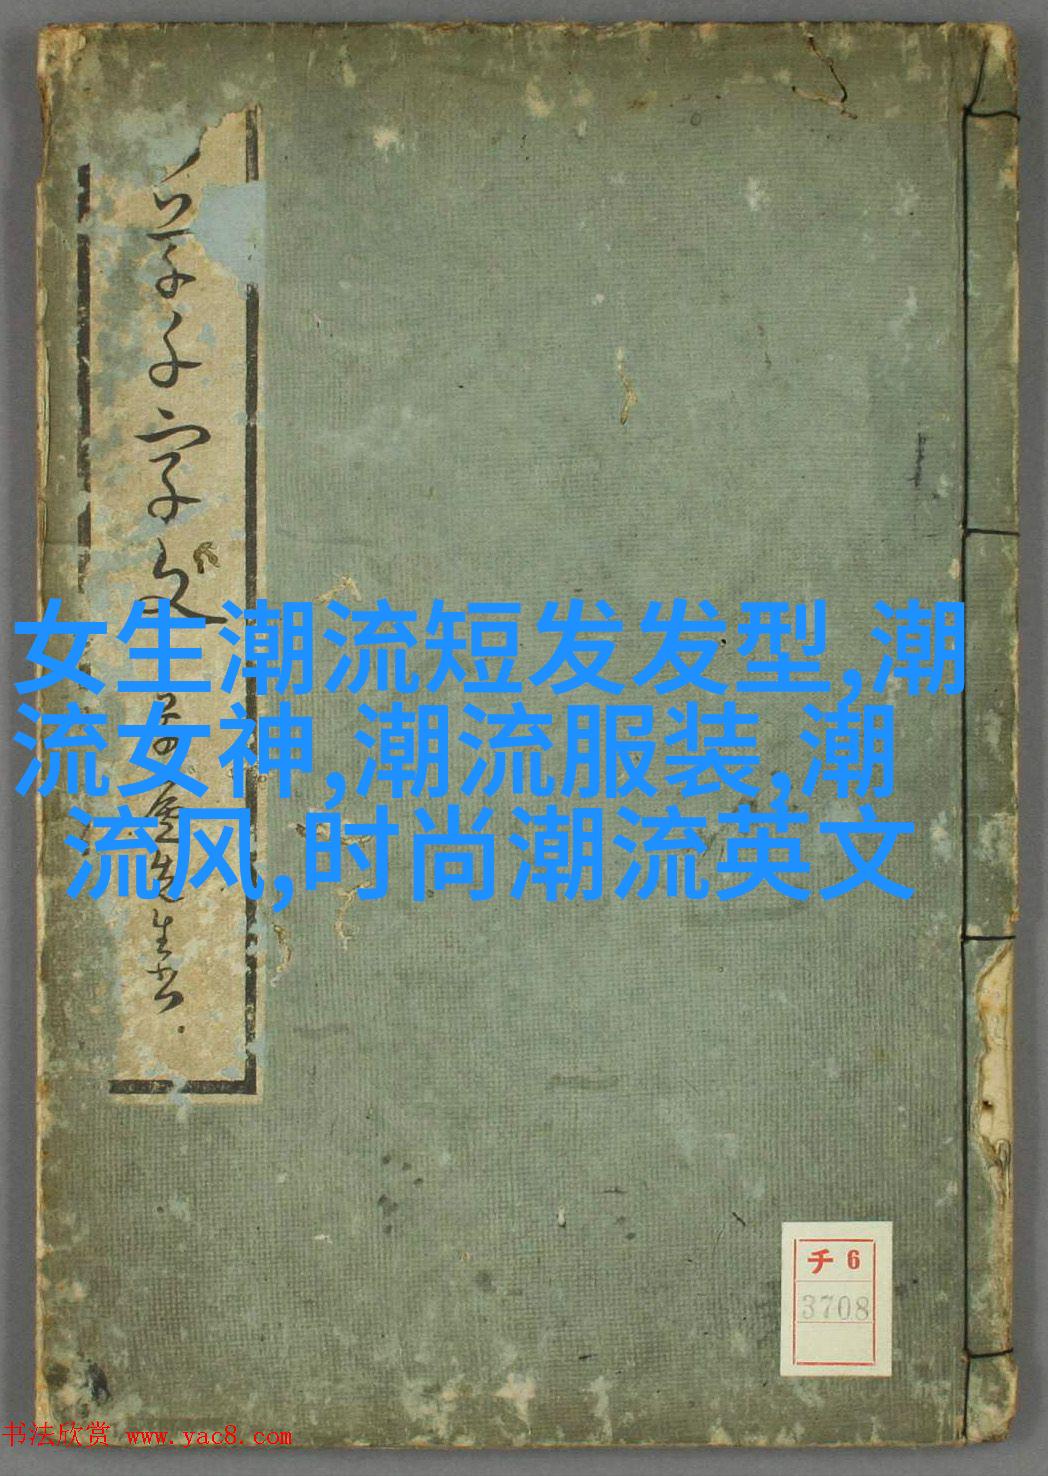 草千字文
女生潮流短发发型,潮
流女神,潮流服装,潮
流风,时尚潮流英文
先生书
チ6
3708
书法欣赏 www.yac8.com